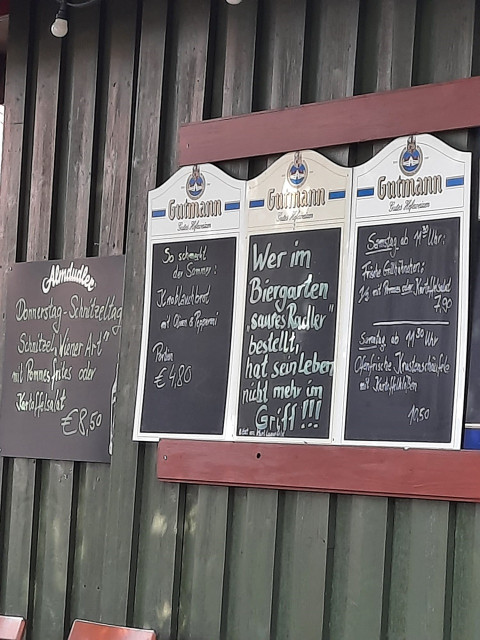 Almdudler
Donnerstag-Schnitzeltag
Schnitzel "Wiener Art"
mit Pommes frites oder
Kartoffelsalat
€ 8,50
Gutmann
So schmeckt
der Sommer:
Knoblauchbrot
mit Oliven & Peperoni
Portion
€ 4,80
Gutmann
Wer im
Biergarten
"saures Radler"
bestellt,
hat sein Leben
nicht mehr im
Griff!!!
Gutmann
Samstag ab 11³⁰ Uhr:
mit Pommes oder Kartoffelsalat
7,90
Sonntag ab 11³⁰ Uhr
Ofenfrische Krustenschäufele
mit Kartoffelklößen
10,50